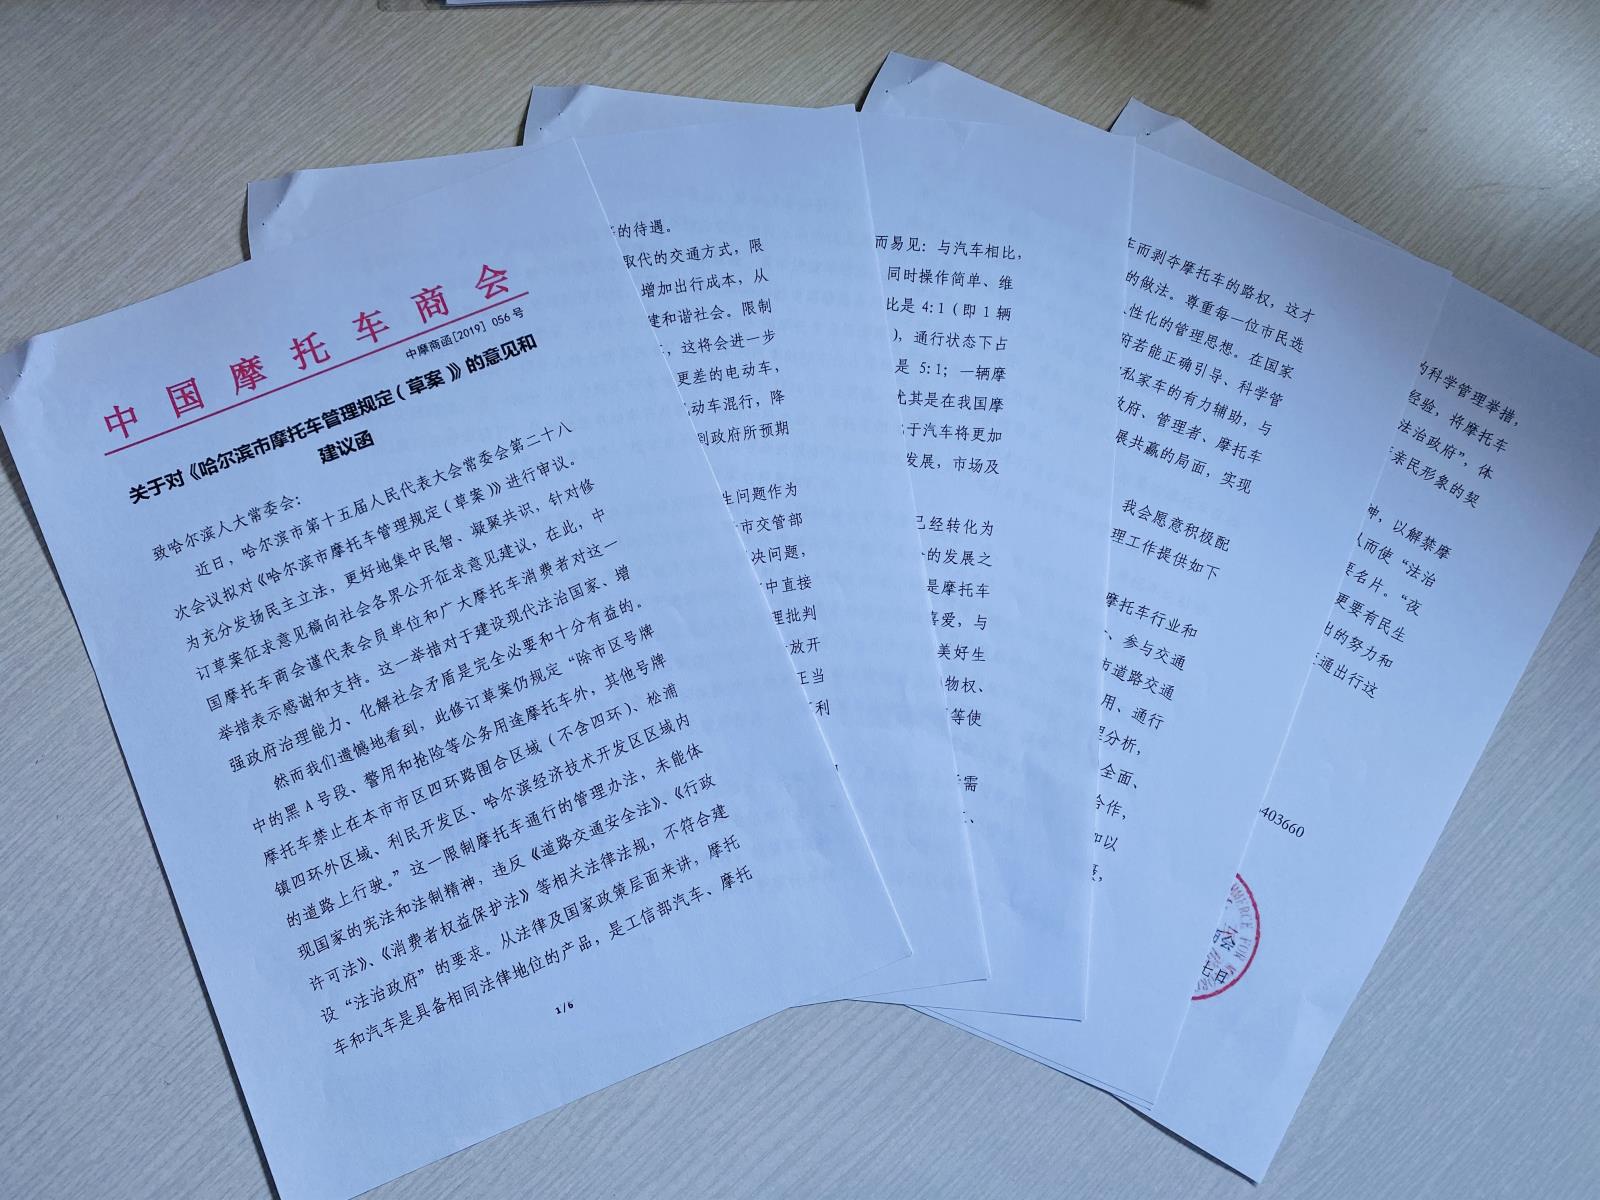 中国摩托车商会
中摩商函[2019] 056号
关于对《哈尔滨市摩托车管理规定（草案）》的意见和
建议函
致哈尔滨人大常委会：
近日，哈尔滨市第十五届人民代表大会常委会第二十八
次会议拟对《哈尔滨市摩托车管理规定（草案）》进行审议。
为充分发扬民主立法，更好地集中民智、凝聚共识，针对修
订草案征求意见稿向社会各界公开征求意见建议，在此，中
国摩托车商会谨代表会员单位和广大摩托车消费者对这一
举措表示感谢和支持。这一举措对于建设现代法治国家、增
强政府治理能力、化解社会矛盾是完全必要和十分有益的。
然而我们遗憾地看到，此修订草案仍规定“除市区号牌
中的黑A号段、警用和抢险等公务用途摩托车外，其他号牌
摩托车禁止在本市市区四环路围合区域（不含四环）、松浦
镇四环外区域、利民开发区、哈尔滨经济技术开发区区域内
的道路上行驶。”这一限制摩托车通行的管理办法，未能体
现国家的宪法和法制精神，违反《道路交通安全法》、《行政
许可法》、《消费者权益保护法》等相关法律法规，不符合建
设“法治政府”的要求。从法律及国家政策层面来讲，摩托
车和汽车是具备相同法律地位的产品，是工信部汽车、摩托
1/6
的待遇。
取代的交通方式，限
增加出行成本，从
建和谐社会。限制
，这将会进一步
更差的电动车，
动车混行，降
到政府所预期
生问题作为
市交管部
决问题，
中直接
理批判
放开
正当
利
而易见：与汽车相比，
同时操作简单、维
比是4:1（即1辆
），通行状态下占
是 5:1；一辆摩
尤其是在我国摩
于汽车将更加
发展，市场及
已经转化为
的发展之
是摩托车
喜爱，与
美好生
物权、
等使
需
车而剥夺摩托车的路权，这才
的做法。尊重每一位市民选
人性化的管理思想。在国家
府若能正确引导、科学管
私家车的有力辅助，与
政府、管理者、摩托车
展共赢的局面，实现
我会愿意积极配
理工作提供如下
摩托车行业和
、参与交通
市道路交通
用、通行
理分析，
全面、
合作，
如以
的科学管理举措，
经验，将摩托车
法治政府”，体
亲民形象的契
神，以解禁摩
从而使“法治
要名片。“夜
更要有民生
出的努力和
交通出行这
403660
MMERCE FOR M
会
七日